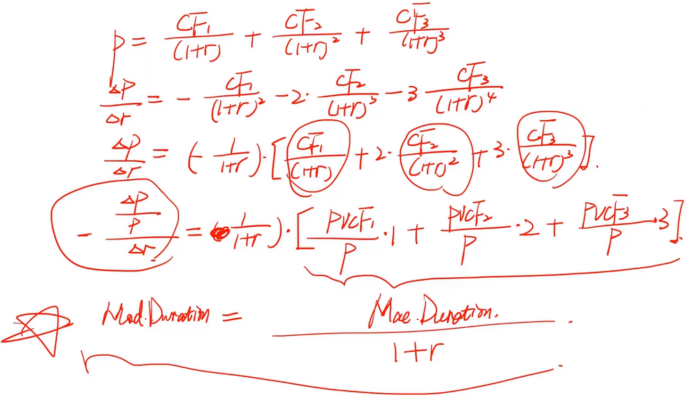 P = CF₁/(1+r) + CF₂/(1+r)² + CF₃/(1+r)³
ΔP/Δr = - CF₁/(1+r)² - 2· CF₂/(1+r)³ - 3 CF₃/(1+r)⁴
ΔP/Δr = (- 1/(1+r))·[CF₁/(1+r) + 2· CF₂/(1+r)² + 3· CF₃/(1+r)³].
- (ΔP/P)/Δr = (1/(1+r))·[PVCF₁/P ·1 + PVCF₂/P ·2 + PVCF₃/P ·3]
Mod.Duration = Mac.Duration./(1+r).